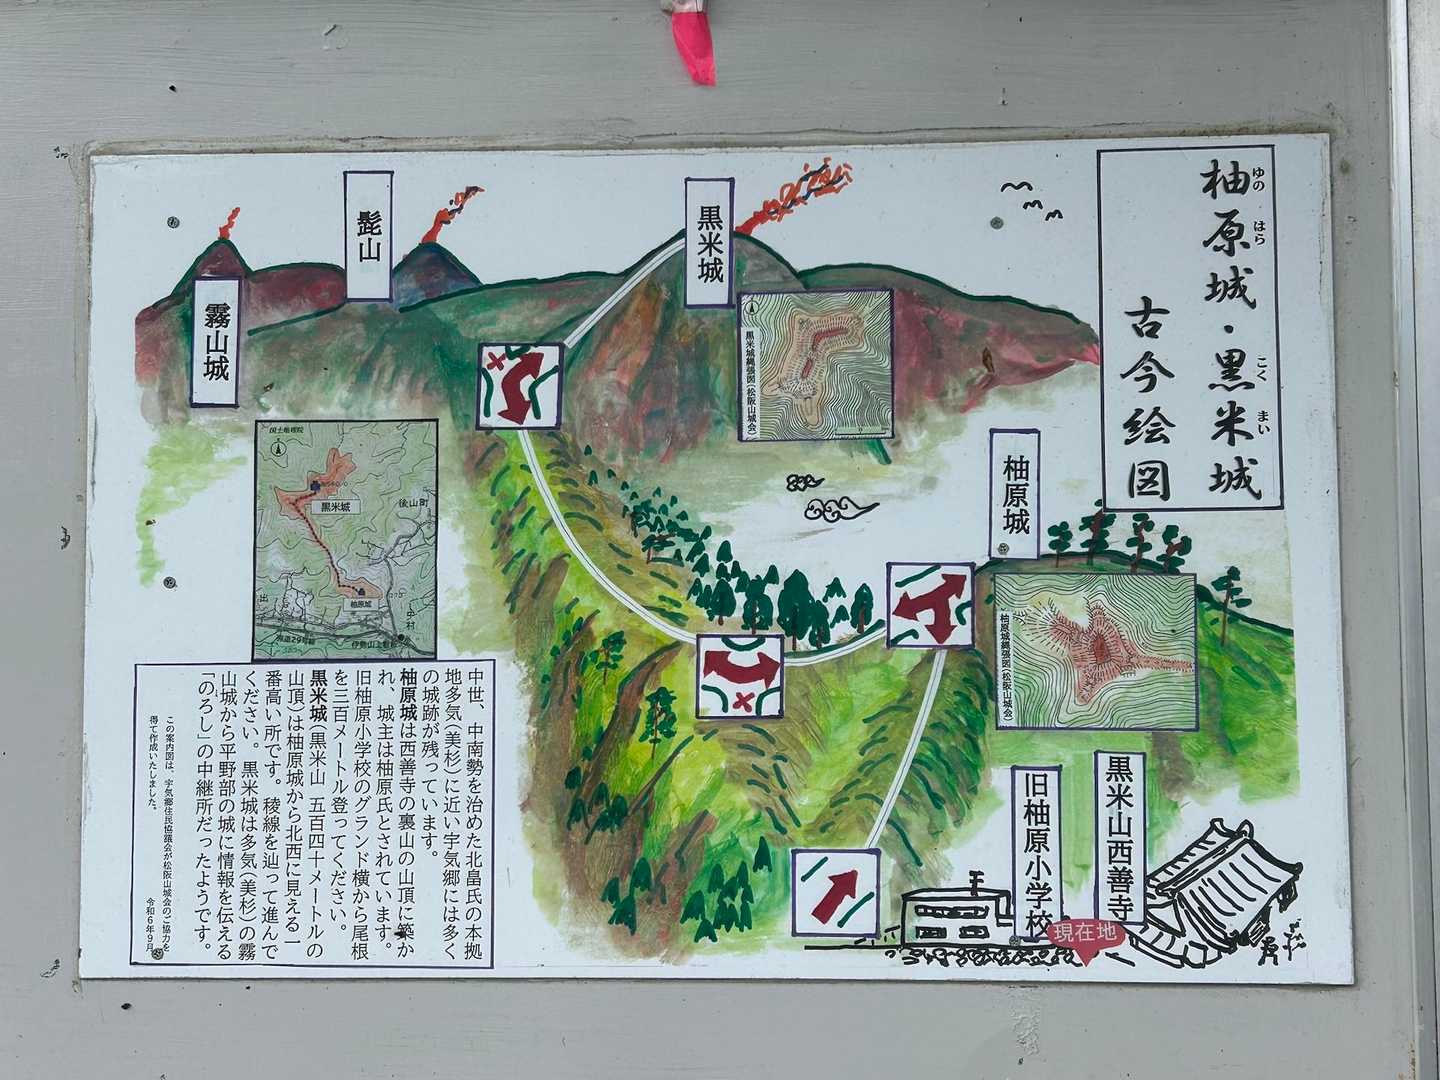 柚原城・黒米城
ゆの はら
こく まい
古今絵図
黒米城
髭山
霧山城
黒米城縄張図(松阪山城会)
柚原城
柚原城縄張図(松阪山城会)
国土地理院
黒米城
後山町
柚原城
中村
県道29号線
旧柚原小学校
黒米山西善寺
現在地
中世、中南勢を治めた北畠氏の本拠
地多気(美杉)に近い宇気郷には多く
の城跡が残っています。
柚原城は西善寺の裏山の山頂に築か
れ、城主は柚原氏とされています。
旧柚原小学校のグランド横から尾根
を三百メートル登ってください。
黒米城(黒米山 五百四十メートルの
山頂)は柚原城から北西に見える一
番高い所です。稜線を辿って進んで
ください。黒米城は多気(美杉)の霧
山城から平野部の城に情報を伝える
「のろし」の中継所だったようです。
この案内図は、宇気郷住民協議会が松阪山城会のご協力を
得て作成いたしました。
令和6年9月